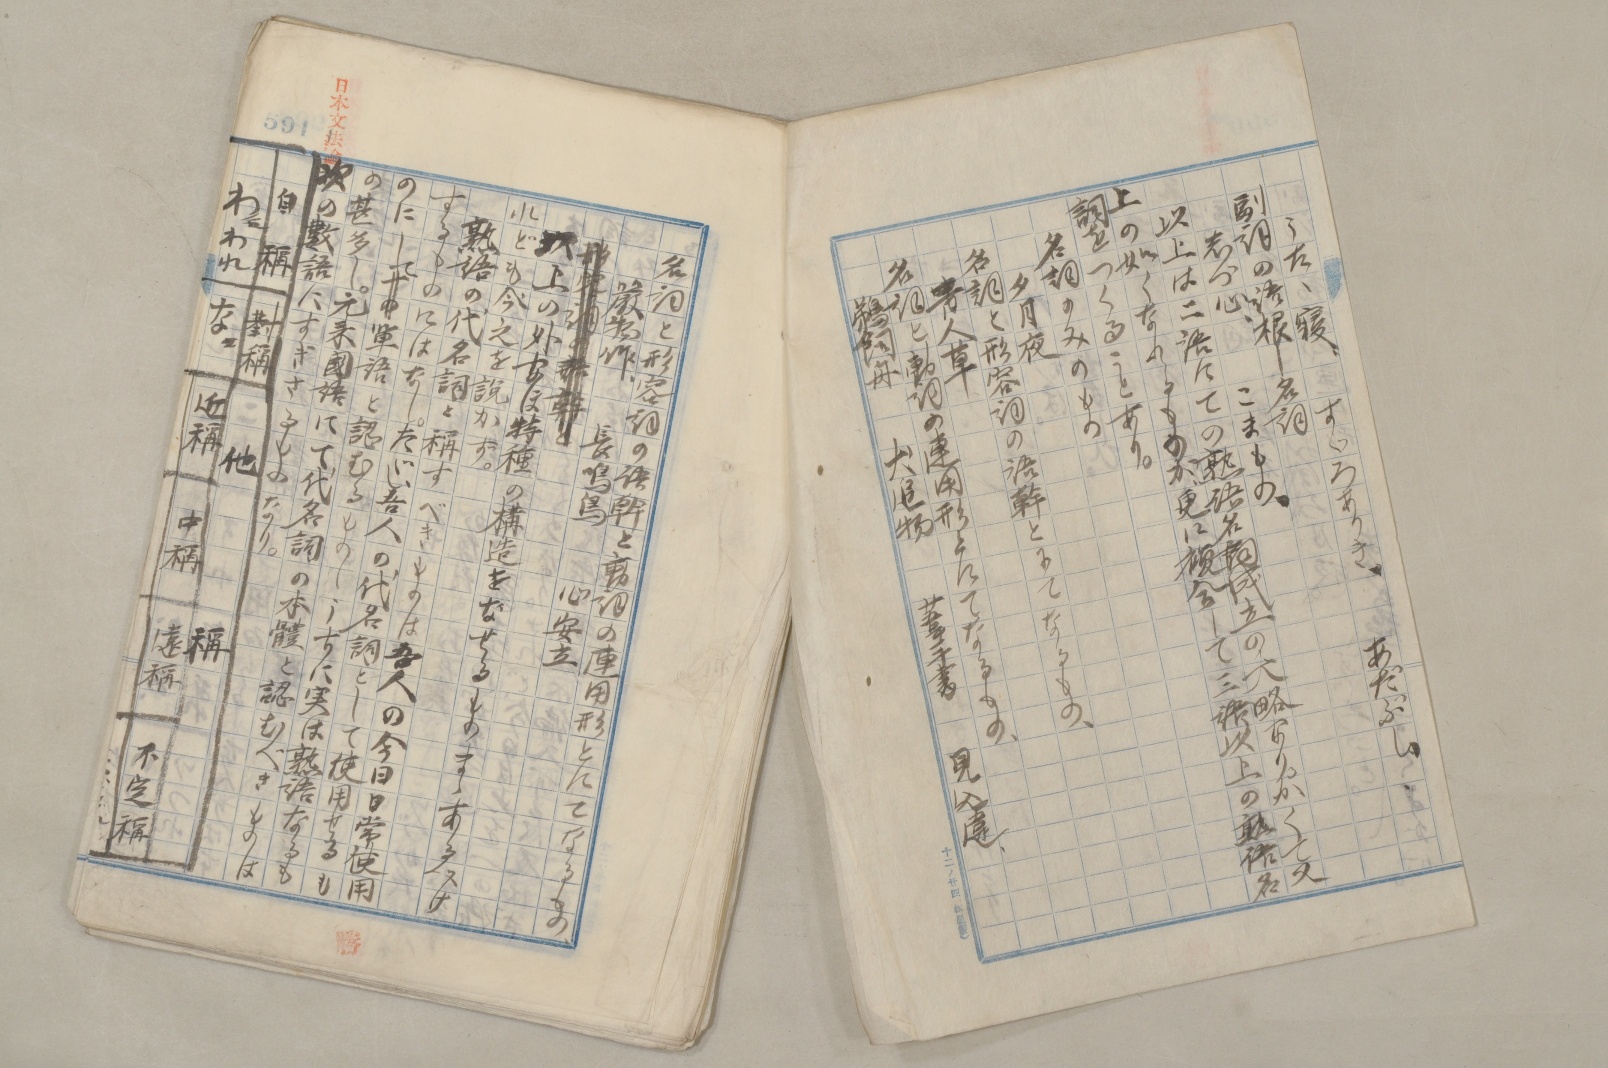 うたゝ寝、　すゞろありき、　あだぶし、
副詞の語根―名詞
志づ心、　こまもの、
以上は二語にての熟語名詞成立の大略なり。かくて又
上の如くなれるものが更に複合して三語以上の熟語名
詞をつくることあり。
名詞のみのもの
夕月夜
名詞と形容詞の語幹とにてなるもの、
青人草
名詞と動詞の連用形とにてなるもの、
鵜飼舟　犬追物　葦手書　見入違、
十二ノ廿四
日本文法論
591
名詞と形容詞の語幹と動詞の連用形とにてなるもの、
厳若作、　長鳴鳥　心安立
以上の外なほ特種の構造をなせるものまゝあるべけ
れども今之を説かず。
熟語の代名詞と称すべきものは吾人の今日日常使用
するものにはなし。たゞ吾人の代名詞として使用せるも
のにして中
の甚多し。元来國語にて代名詞の本體と認むべきものは
次の數語にすぎざるものなり。
自稱
われ
對稱
な
他稱
近稱
中稱
遠稱
不定稱